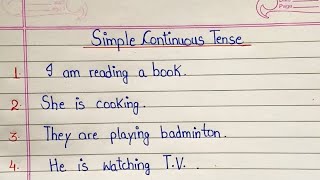 Simple Continuous Tense
1. I am reading a book.
2. She is cooking.
3. They are playing badminton.
4. He is watching T.V.